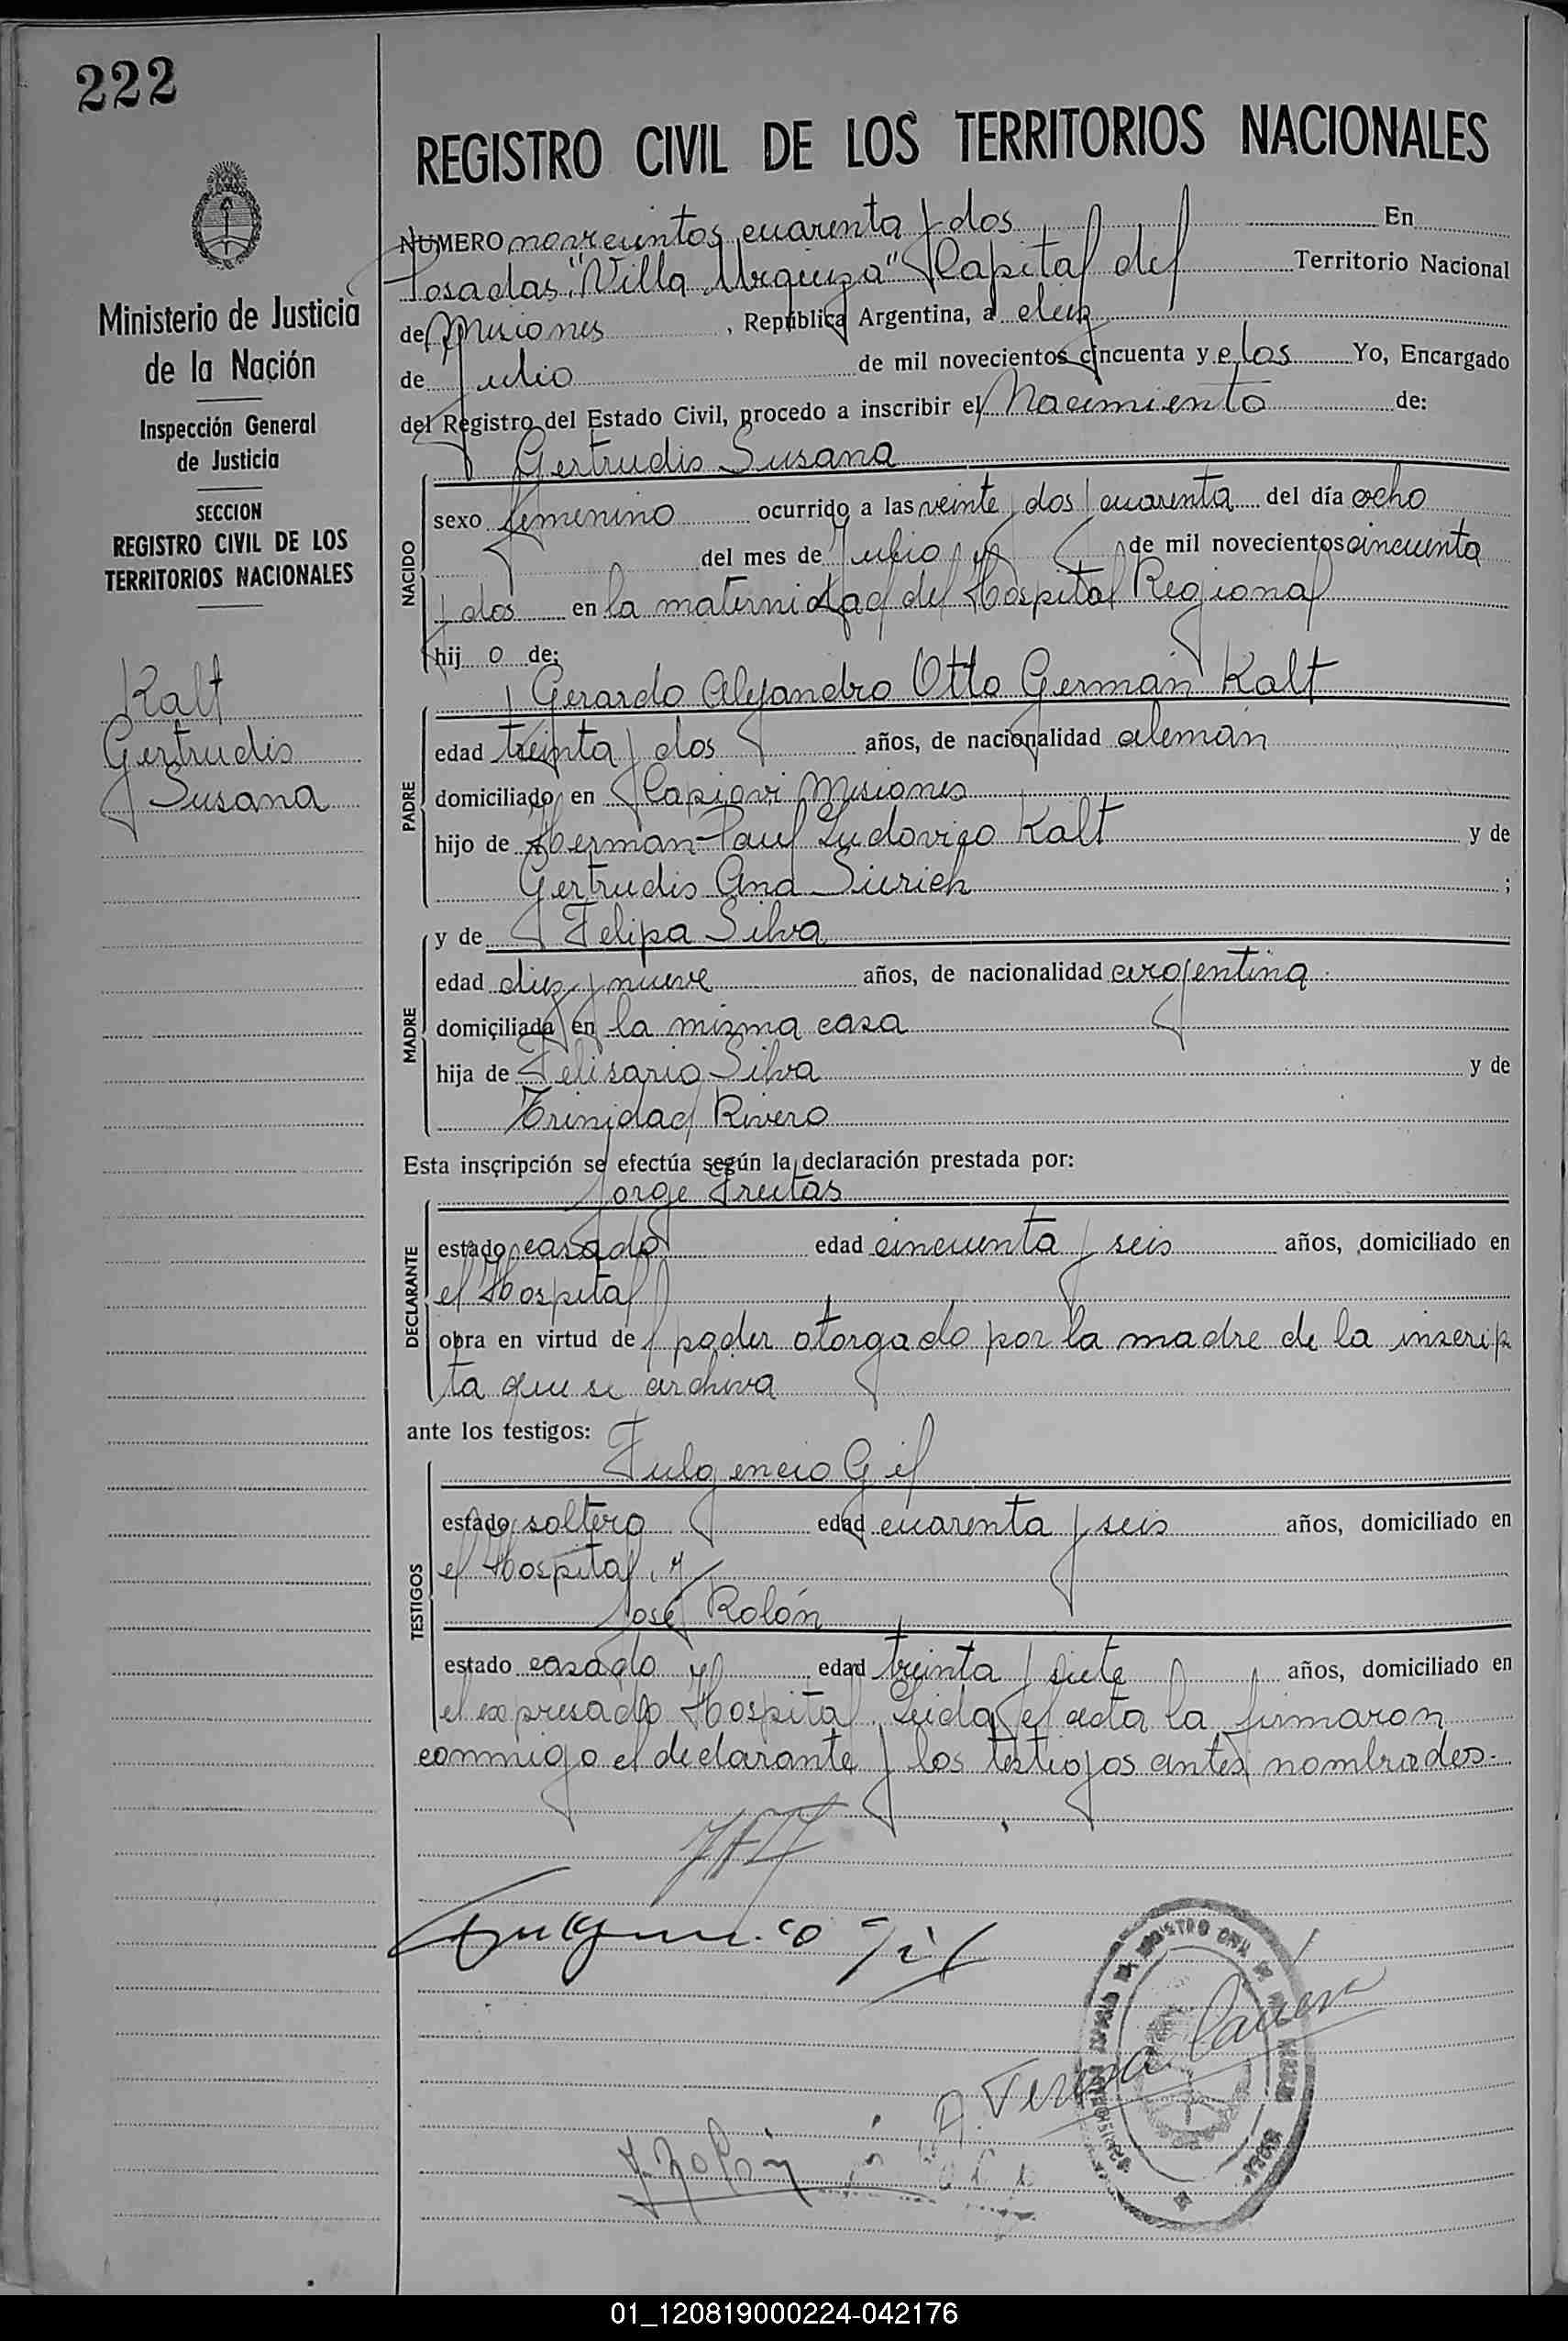 222
REGISTRO CIVIL DE LOS TERRITORIOS NACIONALES
Ministerio de Justicia
de la Nación
Inspección General
de Justicia
SECCION
REGISTRO CIVIL DE LOS
TERRITORIOS NACIONALES
Kalt
Gertrudis
Susana
NUMERO novecientos cuarenta y dos En
Posadas "Villa Urquiza" Capital del Territorio Nacional
de Misiones, República Argentina, a diez
de Julio de mil novecientos cincuenta y dos Yo, Encargado
del Registro del Estado Civil, procedo a inscribir el Nacimiento de:
Gertrudis Susana
NACIDO
sexo femenino ocurrido a las veinte y dos y cuarenta del día ocho
del mes de Julio de mil novecientos cincuenta
y dos en la maternidad del Hospital Regional
hij o de:
Gerardo Alejandro Otto Germán Kalt
PADRE
edad treinta y dos años, de nacionalidad alemán
domiciliado en Capioví Misiones
hijo de Herman Paul Ludovico Kalt y de
Gertrudis Ana ;
y de Felipa Silva
MADRE
edad diez y nueve años, de nacionalidad argentina
domiciliada en la misma casa
hija de Felisario Silva y de
Trinidad Rivero
Esta inscripción se efectúa según la declaración prestada por:
Jorge Freitas
DECLARANTE
estado casado edad cincuenta y seis años, domiciliado en
el Hospital
obra en virtud de poder otorgado por la madre de la inscrip
ta que se archiva
ante los testigos:
Fulgencio Gil
TESTIGOS
estado soltero edad cuarenta y seis años, domiciliado en
el Hospital, y
José Rolón
estado casado edad treinta y siete años, domiciliado en
el expresado Hospital. Leida el acta la firmaron
conmigo el declarante y los testigos antes nombrados.-
Fulgencio Gil
A. Teresa
J. Rolón
01_120819000224-042176